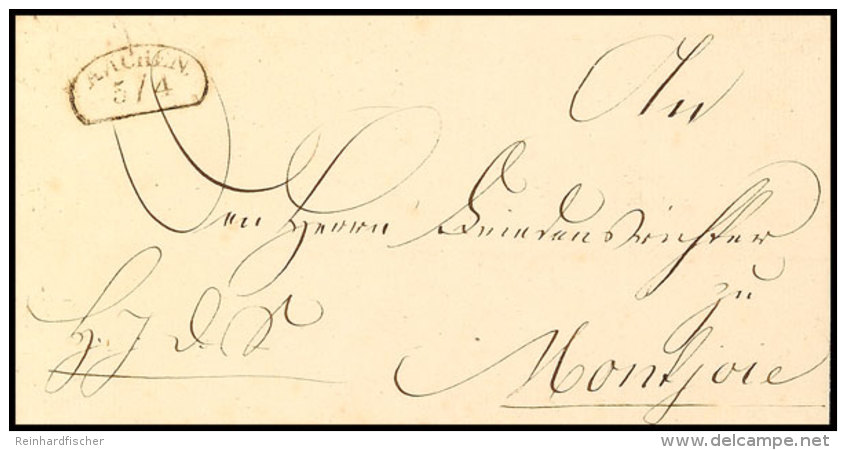 AACHEN.
5/4
An
Den Herrn Friedensrichter
zu
Montjoie
H. J. D. S.
Reinhardfischer
www.delcampe.net